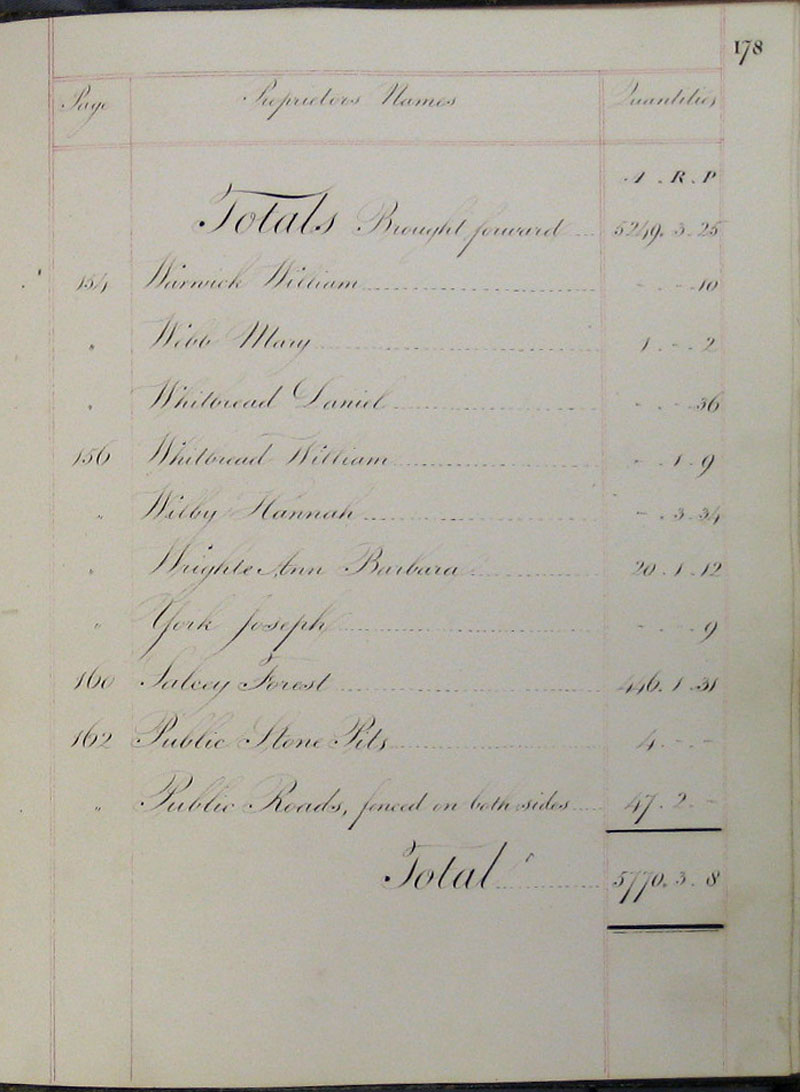 178
Page Proprietors Names Quantities
A . R . P
Totals Brought forward 5249 . 3 . 25
154 Warwick William - . - . 10
" Webb Mary 1 . - . 2
" Whitbread Daniel - . - . 36
156 Whitbread William - . 1 . 9
" Wilby Hannah - . 3 . 34
" Wrighte Ann Barbara 20 . 1 . 12
" York Joseph - . - . 9
160 Salcey Forest 446 . 1 . 31
162 Public Stone Pits 4 . - . -
" Public Roads, fenced on both sides 47 . 2 . -
Total 5770 . 3 . 8